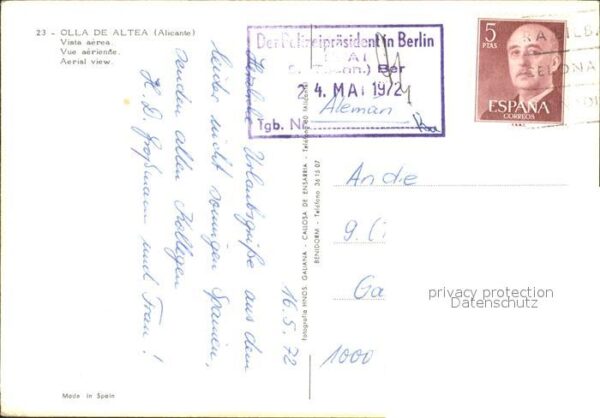 23 - OLLA DE ALTEA (Alicante)
Vista aérea.
Vue aérienne.
Aerial view.
Herzliche Urlaubsgrüße aus dem
leider nicht sonnigen Spanien,
senden allen Kollegen
H. D. Großmann und Frau!
16.5.72
Made in Spain
Fotografia HNOS. GALIANA - CALLOSA DE ENSARRIA - Teléfono 80
BENIDORM - Teléfono 36 15 07
Der Polizeipräsident in Berlin
24. MAI 1972
Tgb. Nr.
Aleman
5
PTAS
ESPAÑA
CORREOS
An die
9. (
Ga
1000
privacy protection
Datenschutz